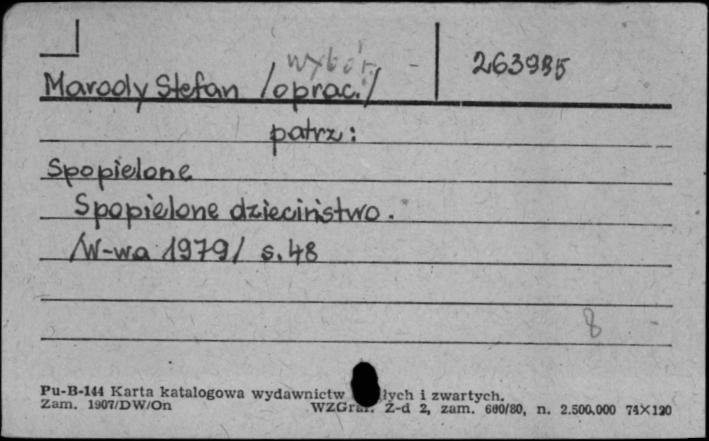 wybór. 263985
Marody Stefan /oprac./
patrz:
Spopielone
Spopielone dzieciństwo.
/W-wa 1979/ s. 48
8
Pu-B-144 Karta katalogowa wydawnictw i zwartych.
Zam. 1907/DW/On WZGraf. Z-d 2, zam. 600/80, n. 2.500.000 74×120